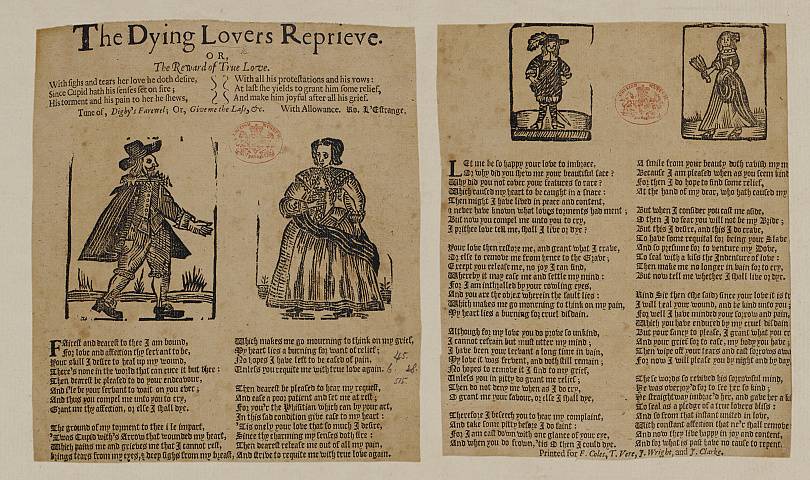 The Dying Lovers Reprieve.
OR,
The Reward of True Love.
With sighs and tears her love he doth desire,
Since Cupid hath his senses set on fire;
His torment and his pain to her he shews,
With all his protestations and his vows:
At last she yields to grant him some relief,
And make him joyful after all his grief.
Tune of, Digby's Farewel; Or, Give me the Lass, &c. With Allowance. Ro. L'Estrange.
Fairest and dearest to thee I am bound,
For love and affection thy servant to be,
Your skill I desire to heal up my wound,
There's none in the world that can cure it but thee:
Then dearest be pleased to do your endeavour,
And i'le be your servant to wait on you ever;
And thus you compel me unto you to cry,
Grant me thy affection, or else I shall dye.
The ground of my torment to thee i le impart,
'Twas Cupid with's Arrow that wounded my heart,
Which pains me and grieves me that I cannot rest,
brings tears from my eyes, & deep sighs from my breast,
Which makes me go mourning to think on my grief,
My heart lies a burning for want of relief;
No hopes I have left to be eased of pain,
Unless you requite me with true love again.
Then dearest be pleased to hear my request,
And ease a poor patient and set me at rest;
For you'r the Phisitian which can by your art,
In this sad condition give ease to my heart:
'Tis onely your love that so much I desire,
Since thy charming my senses doth fire:
Then dearest release me out of all my pain,
And strive to requite me with true love again.
Let me be so happy your love to imbrace,
Or why did you shew me your beautiful face?
Why did you not cover your features so rare?
Which caused my heart to be caught in a snare:
Then might I have lived in peace and content,
I never have known what loves torments had ment;
But now you compel me unto you to cry,
I prithee love tell me, shall I live or dye?
Your love then restore me, and grant what I crave,
Or else to remove me from hence to the Grave;
Except you release me, no joy I can find,
Whereby it may ease me and settle my mind:
For I am inthralled by your rowling eyes,
And you are the object wherein the fault lies:
Which makes me go mourning to think on my pain,
My heart lies a burning for cruel disdain.
Although for my love you do prove so unkind,
I cannot refrain but must utter my mind;
I have been your servant a long time in vain,
My love it was fervent, and doth still remain;
No hopes to remove it I find to my grief,
Unless you in pity do grant me relief;
Then do not deny me when as I do cry,
O grant me your favour, or else I shall dye,
Therefore I beseech you to hear my complaint,
And take some pitty before I do faint:
For I am cast down with one glance of your eye,
And when you do frown, 'tis O then I could dye.
A smile from your beauty doth ravish my
Because I am pleased when as you seem kind
For then I do hope to find some relief,
At the hand of my dear, who hath caused my
But when I consider you cast me aside,
O then I do fear you will not be my Bride;
But this I desire, and this I do crave,
To have some requital for being your Slave
And so presume for to venture my Dove,
To seal with a kiss the Indensure of love:
Then make me no longer in vain for to cry,
But now tell me whether I shall live or dye.
Kind Sir then (she said) since your love it is
I will heal your wound, and be kind unto you;
For well I have minded your sorrow and pain,
Which you have endured by my cruel disdain
But your fancy to please, I grant what you
And your grief for to ease, my body you have;
Then wipe off your tears and cast sorrows
For now I will please you by night and by day,
These words so revived his sorrowful mind,
He was overjoy'd for to see her so kind;
He straightway imbrac'd her, and gave her a
To seal as a pledge of a true lovers bliss:
And so from that instant united in love,
With constant affection that ne'r shall remove
And now they live happy in joy and content,
And for what is past have no cause to repent.
Printed for F. Coles, T. Vere, J. Wright, and J. Clarke.